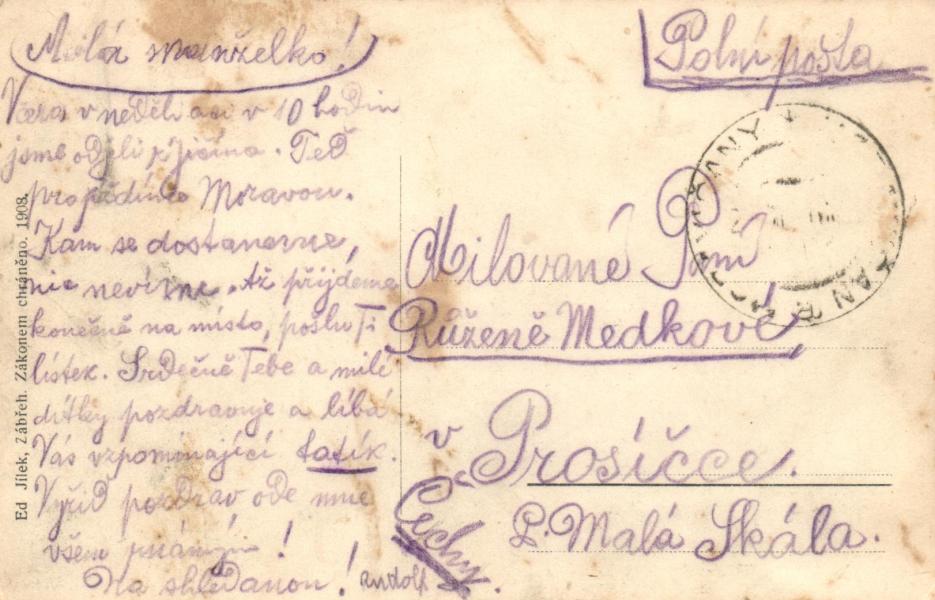 Milá manželko!
Včera v neděli asi v 10 hodin
jsme odjeli z Jičína. Teď
projíždíme Moravou.
Kam se dostaneme,
nic nevíme. Až přijdeme
konečně na místo, pošlu Ti
lístek. Srdečně Tebe a milé
dítky pozdravuje a líbá
Vás vzpomínající tatík.
Vyřiď pozdrav ode mne
všem známým!
Na shledanou! Rudolf
Ed Jílek, Zábřeh. Zákonem chráněno. 1908.
Polní pošta
Milované Paní
Růženě Medkové,
v Prosíčce.
P. Malá Skála.
Čechy.